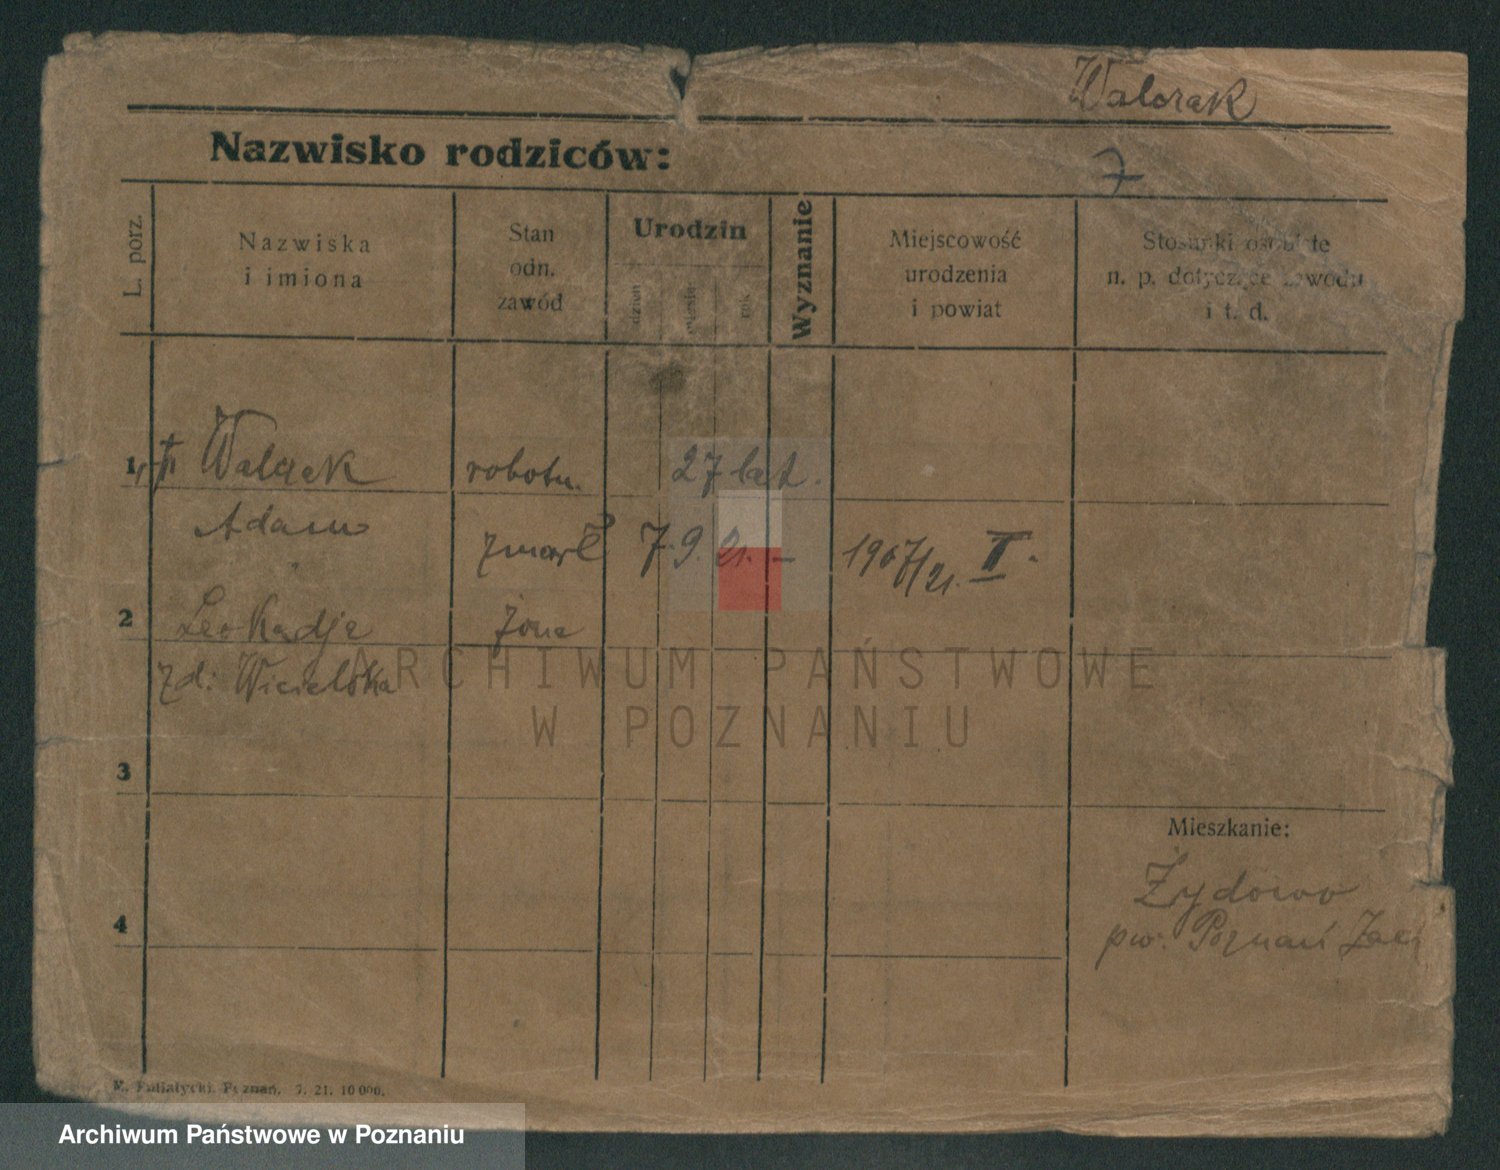 Walczak
Nazwisko rodziców:
7
L. porz.
Nazwiska
i imiona
Stan
odn.
zawód
Urodzin
dzień
miesiąc
rok
Wyznanie
Miejscowość
urodzenia
i powiat
Stosunki osobiste
n. p. dotyczące zawodu
i t. d.
1 † Walczak robotn. 27 lat.
Adam zmarł 7.9.21. – 1907/21. II.
2 Leokadja żona
zd.
3
Mieszkanie:
Żydowo
4
pw. Poznań Zach
ARCHIWUM PAŃSTWOWE
W POZNANIU
Poznań. 7. 21. 10 000.
Archiwum Państwowe w Poznaniu